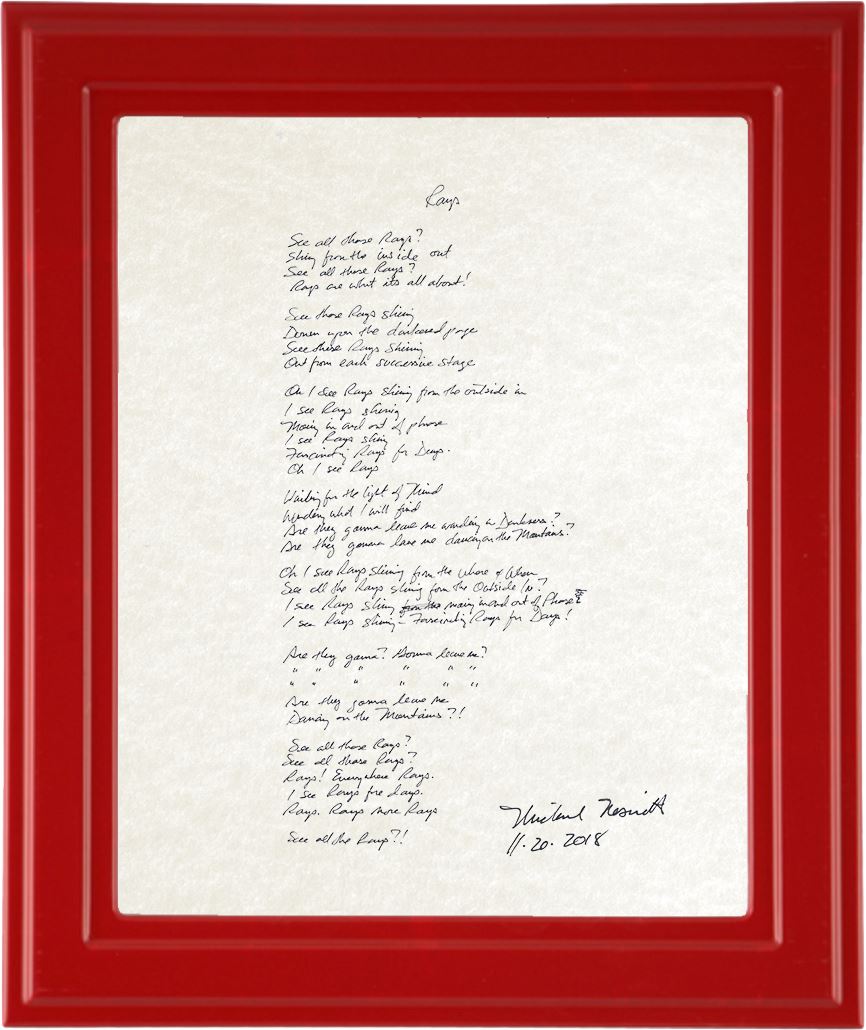 Rays
See all those Rays?
Shing from the inside out
See all those Rays?
Rays are what its all about!
See those Rays shining
Down upon the darkened page
See these Rays Shining
Out from each successive stage
Oh I See Rays Shining from the outside in
I see Rays shining
Moving in and out of phase
I see Rays shing
Fascinating Rays for Days.
Oh I see Rays
Waiting for the light of Mind
Wondering what I will find
Are they gonna leave me wandring in Darkness?
Are they gonna leave me dancing on the Mountains?
Oh I see Rays Shining from the Where & When
See all the Rays shing from the Outside In?
I see Rays Shing from the moving in and out of Phase
I see Rays shing - Fascinating Rays for Days!
Are they gonna? Gonna leave me?
" " " " " "
" " " " " "
Are they gonna leave me
Dancing on the Mountains?!
See all those Rays?
See all those Rays?
Rays! Everywhere Rays.
I see Rays for days.
Rays. Rays more Rays
See all the Rays?!
Michael Nesmith
11.20.2018